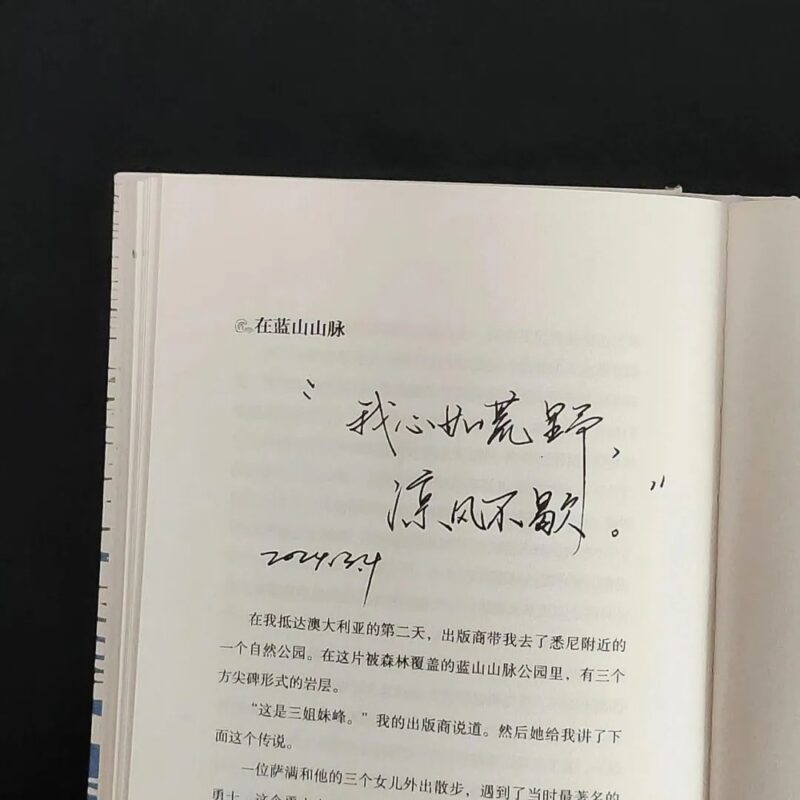 在蓝山山脉
“我心如荒野，
凉风不歇。”
2024.12.4
在我抵达澳大利亚的第二天，出版商带我去了悉尼附近的
一个自然公园。在这片被森林覆盖的蓝山山脉公园里，有三个
方尖碑形式的岩层。
“这是三姐妹峰。”我的出版商说道。然后她给我讲了下
面这个传说。
一位萨满和他的三个女儿外出散步，遇到了当时最著名的